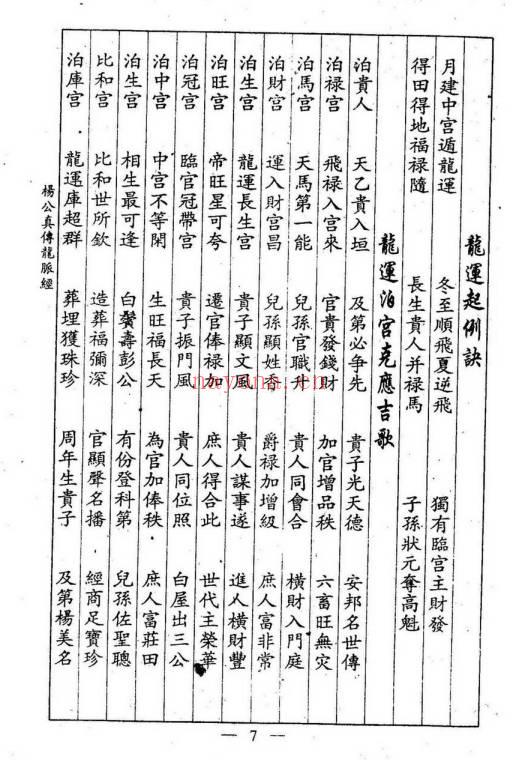 龍運起例訣
月建中宮遁龍運 冬至順飛夏逆飛 獨有臨宮主財發
得田得地福祿隨 長生貴人并祿馬 子孫狀元奪高魁
龍運泊宮克應吉歌
泊貴人 天乙貴入垣 及第必爭先 貴子光天德 安邦名世傳
泊祿宮 飛祿入宮來 官貴發錢財 加官增品秩 六畜旺無灾
泊馬宮 天馬第一能 兒孫官職升 貴人同會合 橫財入門庭
泊財宮 運入財宮昌 兒孫顯姓香 爵祿加增級 庶人富非常
泊生宮 龍運長生宮 貴子顯文風 貴人謀事遂 進人橫財豐
泊旺宮 帝旺星可夸 遷官俸祿加 庶人得合此 世代主榮華
泊冠宮 臨官冠帶宮 貴子振門風 貴人同位照 白屋出三公
泊中宮 中宮不等閑 生旺福長天 為官加俸秩 庶人富莊田
泊生宮 相生最可逢 白鬢壽彭公 有份登科第 兒孫佐聖聰
比和宮 比和世所欽 造葬福彌深 官顯聲名播 經商足寶珍
泊庫宮 龍運庫超群 葬埋獲珠珍 周年生貴子 及第楊美名
楊公真傳龍脈經
— 7 —
nayona.cn